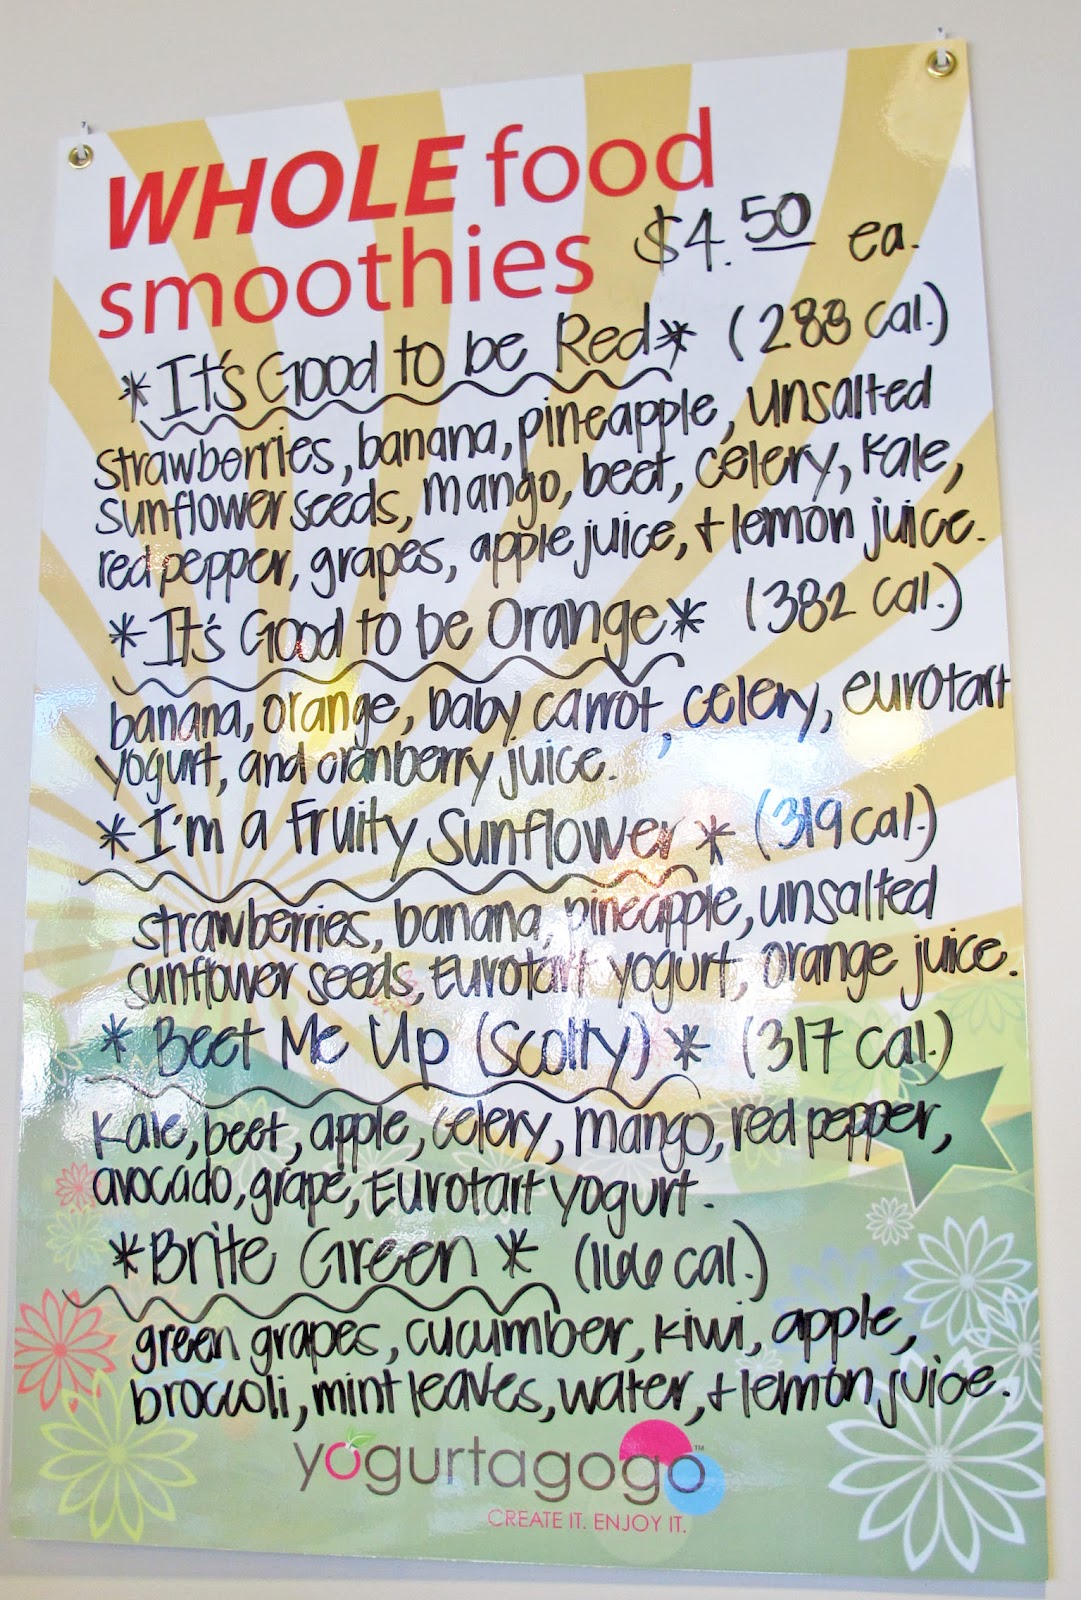 WHOLE food
smoothies $4.50 ea.
*It's Good to be Red* (288 cal.)
strawberries, banana, pineapple, unsalted
sunflower seeds, mango, beet, celery, kale,
red pepper, grapes, apple juice, + lemon juice.
*It's Good to be Orange* (382 cal.)
banana, orange, baby carrot, celery, eurotart
yogurt, and cranberry juice.
*I'm a Fruity Sunflower* (319 cal.)
strawberries, banana, pineapple, unsalted
sunflower seeds, Eurotart yogurt, orange juice.
*Beet Me Up (Scotty)* (317 cal.)
Kale, beet, apple, celery, mango, red pepper,
avocado, grape, Eurotart yogurt.
*Brite Green* (166 cal.)
green grapes, cucumber, kiwi, apple,
broccoli, mint leaves, water, + lemon juice.
yogurtagogo™
CREATE IT. ENJOY IT.